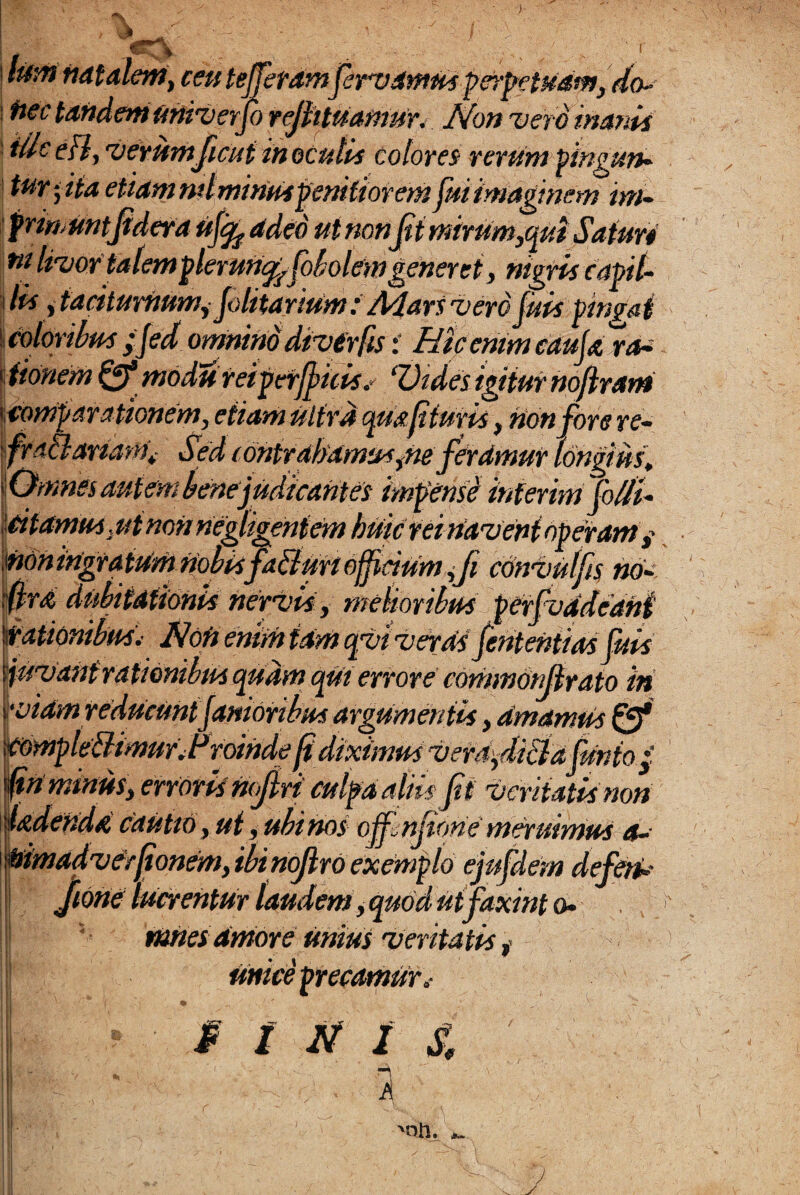 lum natalem, ceu tesseram servamus perpetuam, do-
nec tandem universo restituamur. Non verò inanis
ille est, verùm sicut in oculis colores rerum pingun-
tur; ita etiam nil minus penitiorem sui imaginem im-
primunt sidera usq; adeò ut non sit mirum, qui Saturi
ni livor talem plerunq; sobolem generet, nigris capil-
lis, taciturnum, solitarium: Mars verò suis pingat
coloribus; sed omninò diversis: Hîc enim causæ ra-
tionem & modū rei perspicis. Vides igitur nostram
comparationem, etiam ultrà quæsituris, non fore re-
fractariam. Sed contrahamus, ne feramur longiùs.
Omnes autem bene judicantes impensè interim solli-
citamus, ut non negligentem huic rei navent operam;
non ingratum nobis facturi officium, si convulsis no-
stræ dubitationis nervis, melioribus persvadeant
rationibus. Non enim tam qvi veras sententias suis
juvant rationibus quàm qui errore commonstrato in
viam reducunt sanioribus argumentis, amamus &
complectimur. Proinde si diximus vera, dicta sunto;
sin minùs, erroris nostri culpa aliis sit veritatis non
lædendæ cautio, ut, ubi nos offensione meruimus a-
nimadversionem, ibi nostro exemplo ejusdem defen-
sione lucrentur laudem, quod ut faxint o-
mnes amore unius veritatis,
unicè precamur.
FINIS.